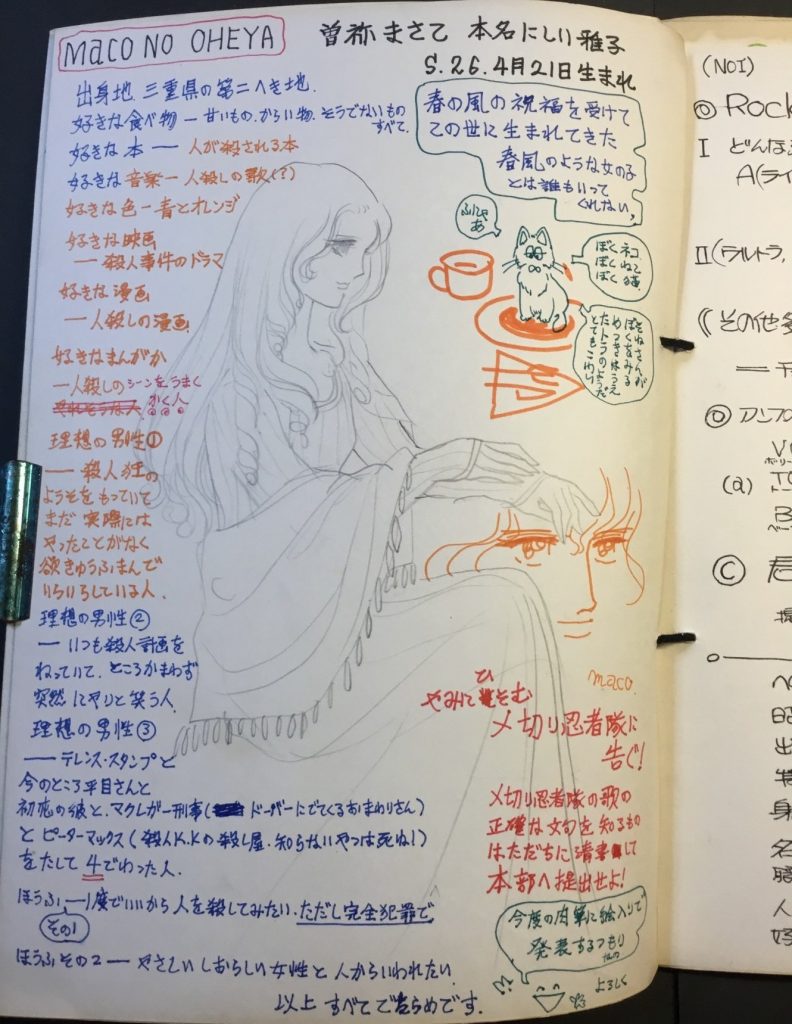 MACO NO OHEYA
曽祢まさこ 本名にしい雅子
S.26.4月21日生まれ
出身地 三重県の第二へき地.
好きな食べ物 — 甘いもの.からい物.そうでないもの
すべて.
好きな本 — 人が殺される本
好きな音楽 — 人殺しの歌(?)
好きな色 — 青とオレンジ
好きな映画
— 殺人事件のドラマ
好きな漫画
— 人殺しの漫画
好きなまんがか
— 人殺しのシーンをうまく
かく人
理想の男性①
— 殺人狂の
ようそをもっていて
まだ実際には
やったことがなく
欲きゅうふまんで
いらいらしている人.
理想の男性②
— いつも殺人計画を
ねっていて.ところかまわず
突然ニヤリと笑う人.
理想の男性③
— テレンス・スタンプと
今のところ平目さんと
初恋の彼と.マクレガー刑事(ドーバーにでてくるおまわりさん)
とピーターマックス(殺人K.Kの殺し屋.知らないやつは死ね!)
をたして4でわった人.
ほうふ — 1度でいいから人を殺してみたい.ただし完全犯罪で
その1
ほうふその2 — やさしいしおらしい女性と人からいわれたい.
以上すべてでたらめです.
春の風の祝福を受けて
この世に生まれてきた
春風のような女の子
とは誰もいって
くれない,
ふにゃあ
ぼくネコ
ぼくねこ
ぼく猫.
そねさんが
ぼくをみる
めつきはうえ
たトラのようだ
とてもこわい
maco.
やみにひそむ
〆切り忍者隊に
告ぐ!
〆切り忍者隊の歌の
正確な文句を知るもの
はただちに清書して
本部へ提出せよ!
今度の肉筆に絵入りで
発表するつもり
なの
よろしく
(NO1)
◎ Rock
I どんな
A(ライ
II(ウルトラ,
《その他
◎ アンプ
(a)
Ⓒ 君